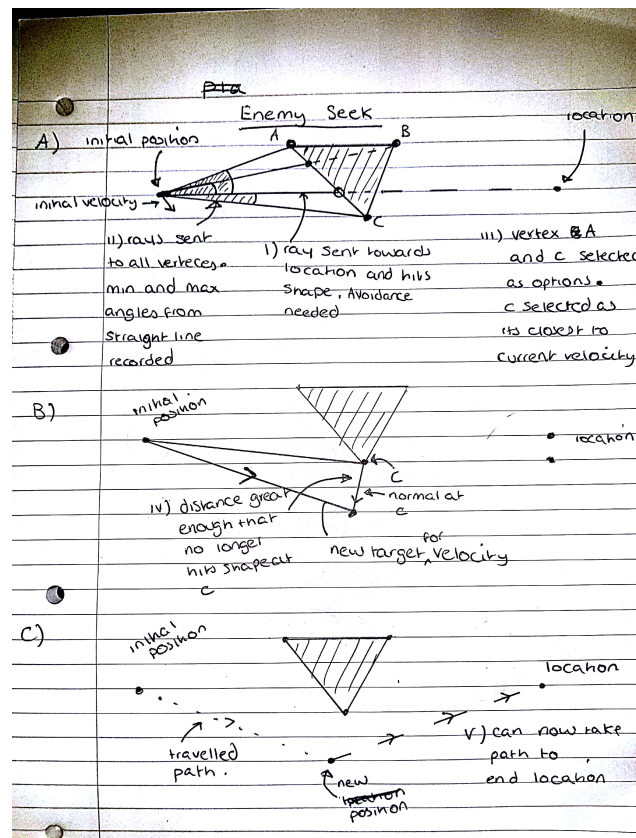 Enemy Seek
A) initial position
A
B
location
initial velocity →
C
ii) rays sent
to all verteces.
min and max
angles from
straight line
recorded
i) ray sent towards
location and hits
shape. Avoidance
needed
iii) vertex A
and C selected
as options.
C selected as
its closest to
current velocity
B)
initial
position
location
C
normal at
c
iv) distance great
enough that
no longer
hits shape at
c
new target for velocity
C)
initial
position
location
travelled
path.
new
position
v) can now take
path to
end location